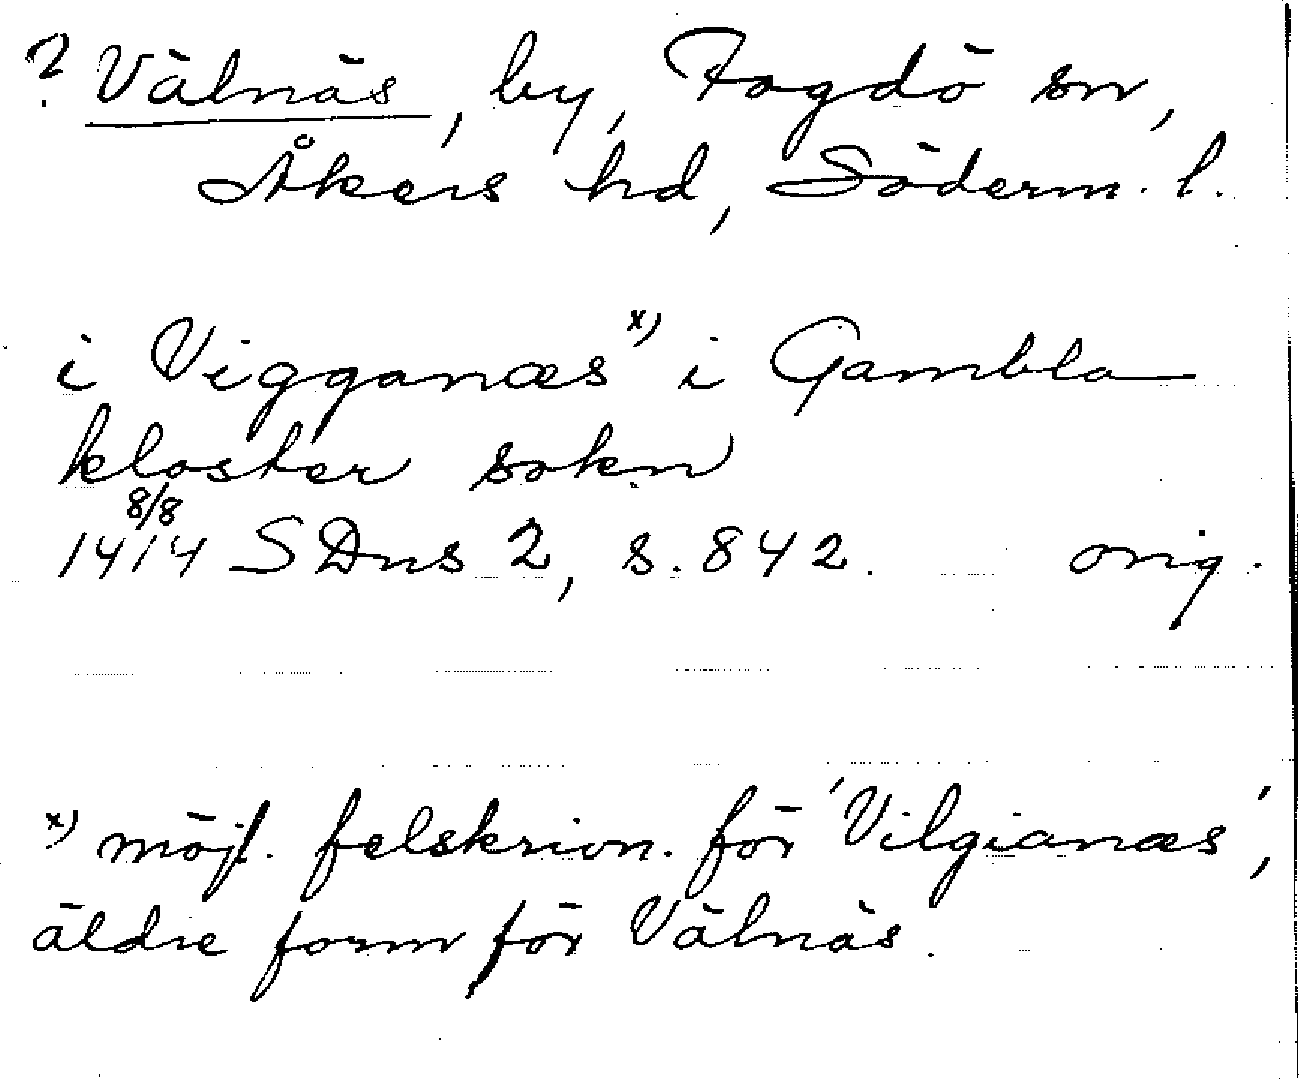 ? Välnäs, by, Fogdö sn,
Åkers hd, Söderm. l.
i Vigganæs x) i Gambla
kloster sokn
8/8
1414 SDns 2, s. 842. orig.
x) möjl. felskrivn. för 'Vilgianæs',
äldre form för Välnäs.